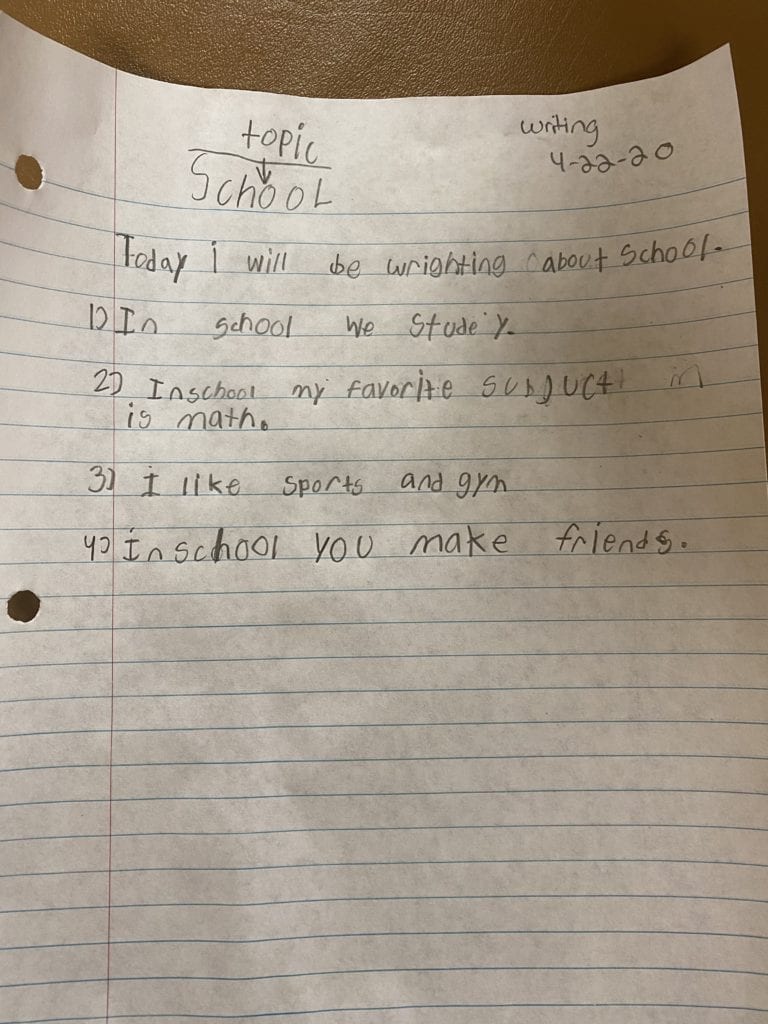 topic
writing
4-22-20
School
Today i will be wrighting about School.
1) In school we Studey.
2) Inschool my favorite subjuct in
is math.
3) I like sports and gym
4) Inschool you make friends.